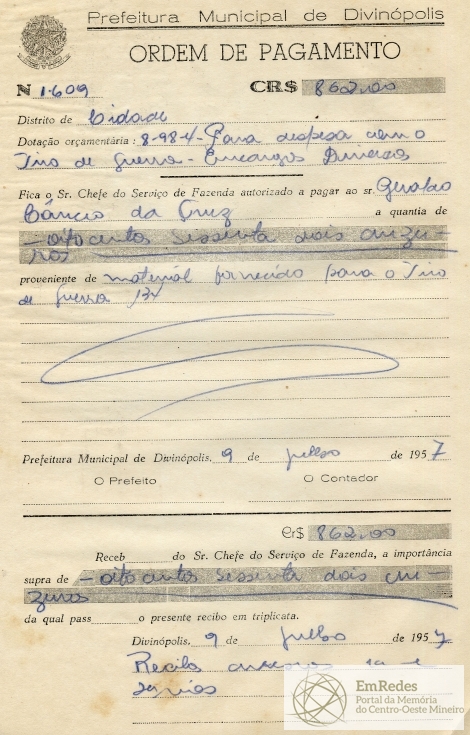 Prefeitura Municipal de Divinópolis
ORDEM DE PAGAMENTO
N 1.609 CR$ 862,00
Distrito de Cidade
Dotação orçamentária: 8-98-4- Para despesa com o
Tiro de Guerra - Encargos Diversos
Fica o Sr. Chefe do Serviço de Fazenda autorizado a pagar ao sr. Geraldo
da Cruz a quantia de
- oitocentos sessenta dois cruzei-
ros
proveniente de material fornecido para o Tiro
de Guerra 134
Prefeitura Municipal de Divinópolis, 9 de julho de 1957
O Prefeito O Contador
Cr$ 862,00
Receb do Sr. Chefe do Serviço de Fazenda, a importância
supra de - oitocentos sessenta dois cru-
zeiros
da qual pass o presente recibo em triplicata.
Divinópolis, 9 de julho de 1957
Recibo
EmRedes
Portal da Memória
do Centro-Oeste Mineiro